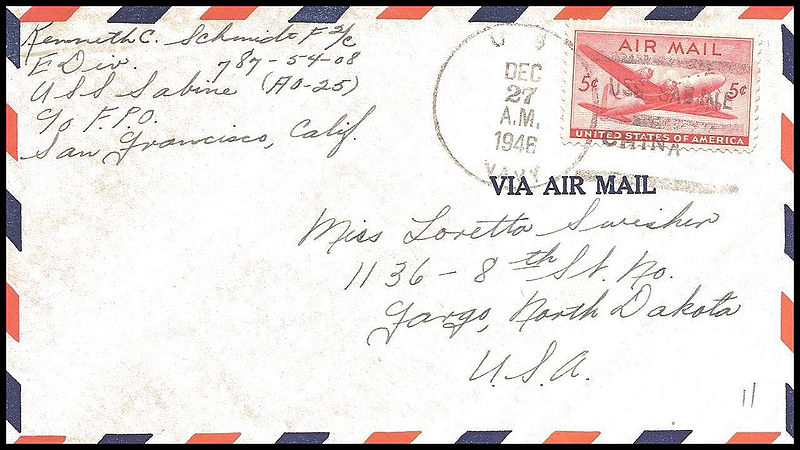 Kenneth C. Schmidt F 2/c
E Div. 787-54-08
USS Sabine (AO-25)
c/o F.P.O.
San Francisco, Calif.
U S
DEC
27
A.M.
1946
NAVY
AIR MAIL
5¢ 5¢
USS SABINE
UNITED STATES OF AMERICA
CHINA
VIA AIR MAIL
Miss Loretta Swisher
1136 - 8th St. No.
Fargo, North Dakota
U.S.A.
11